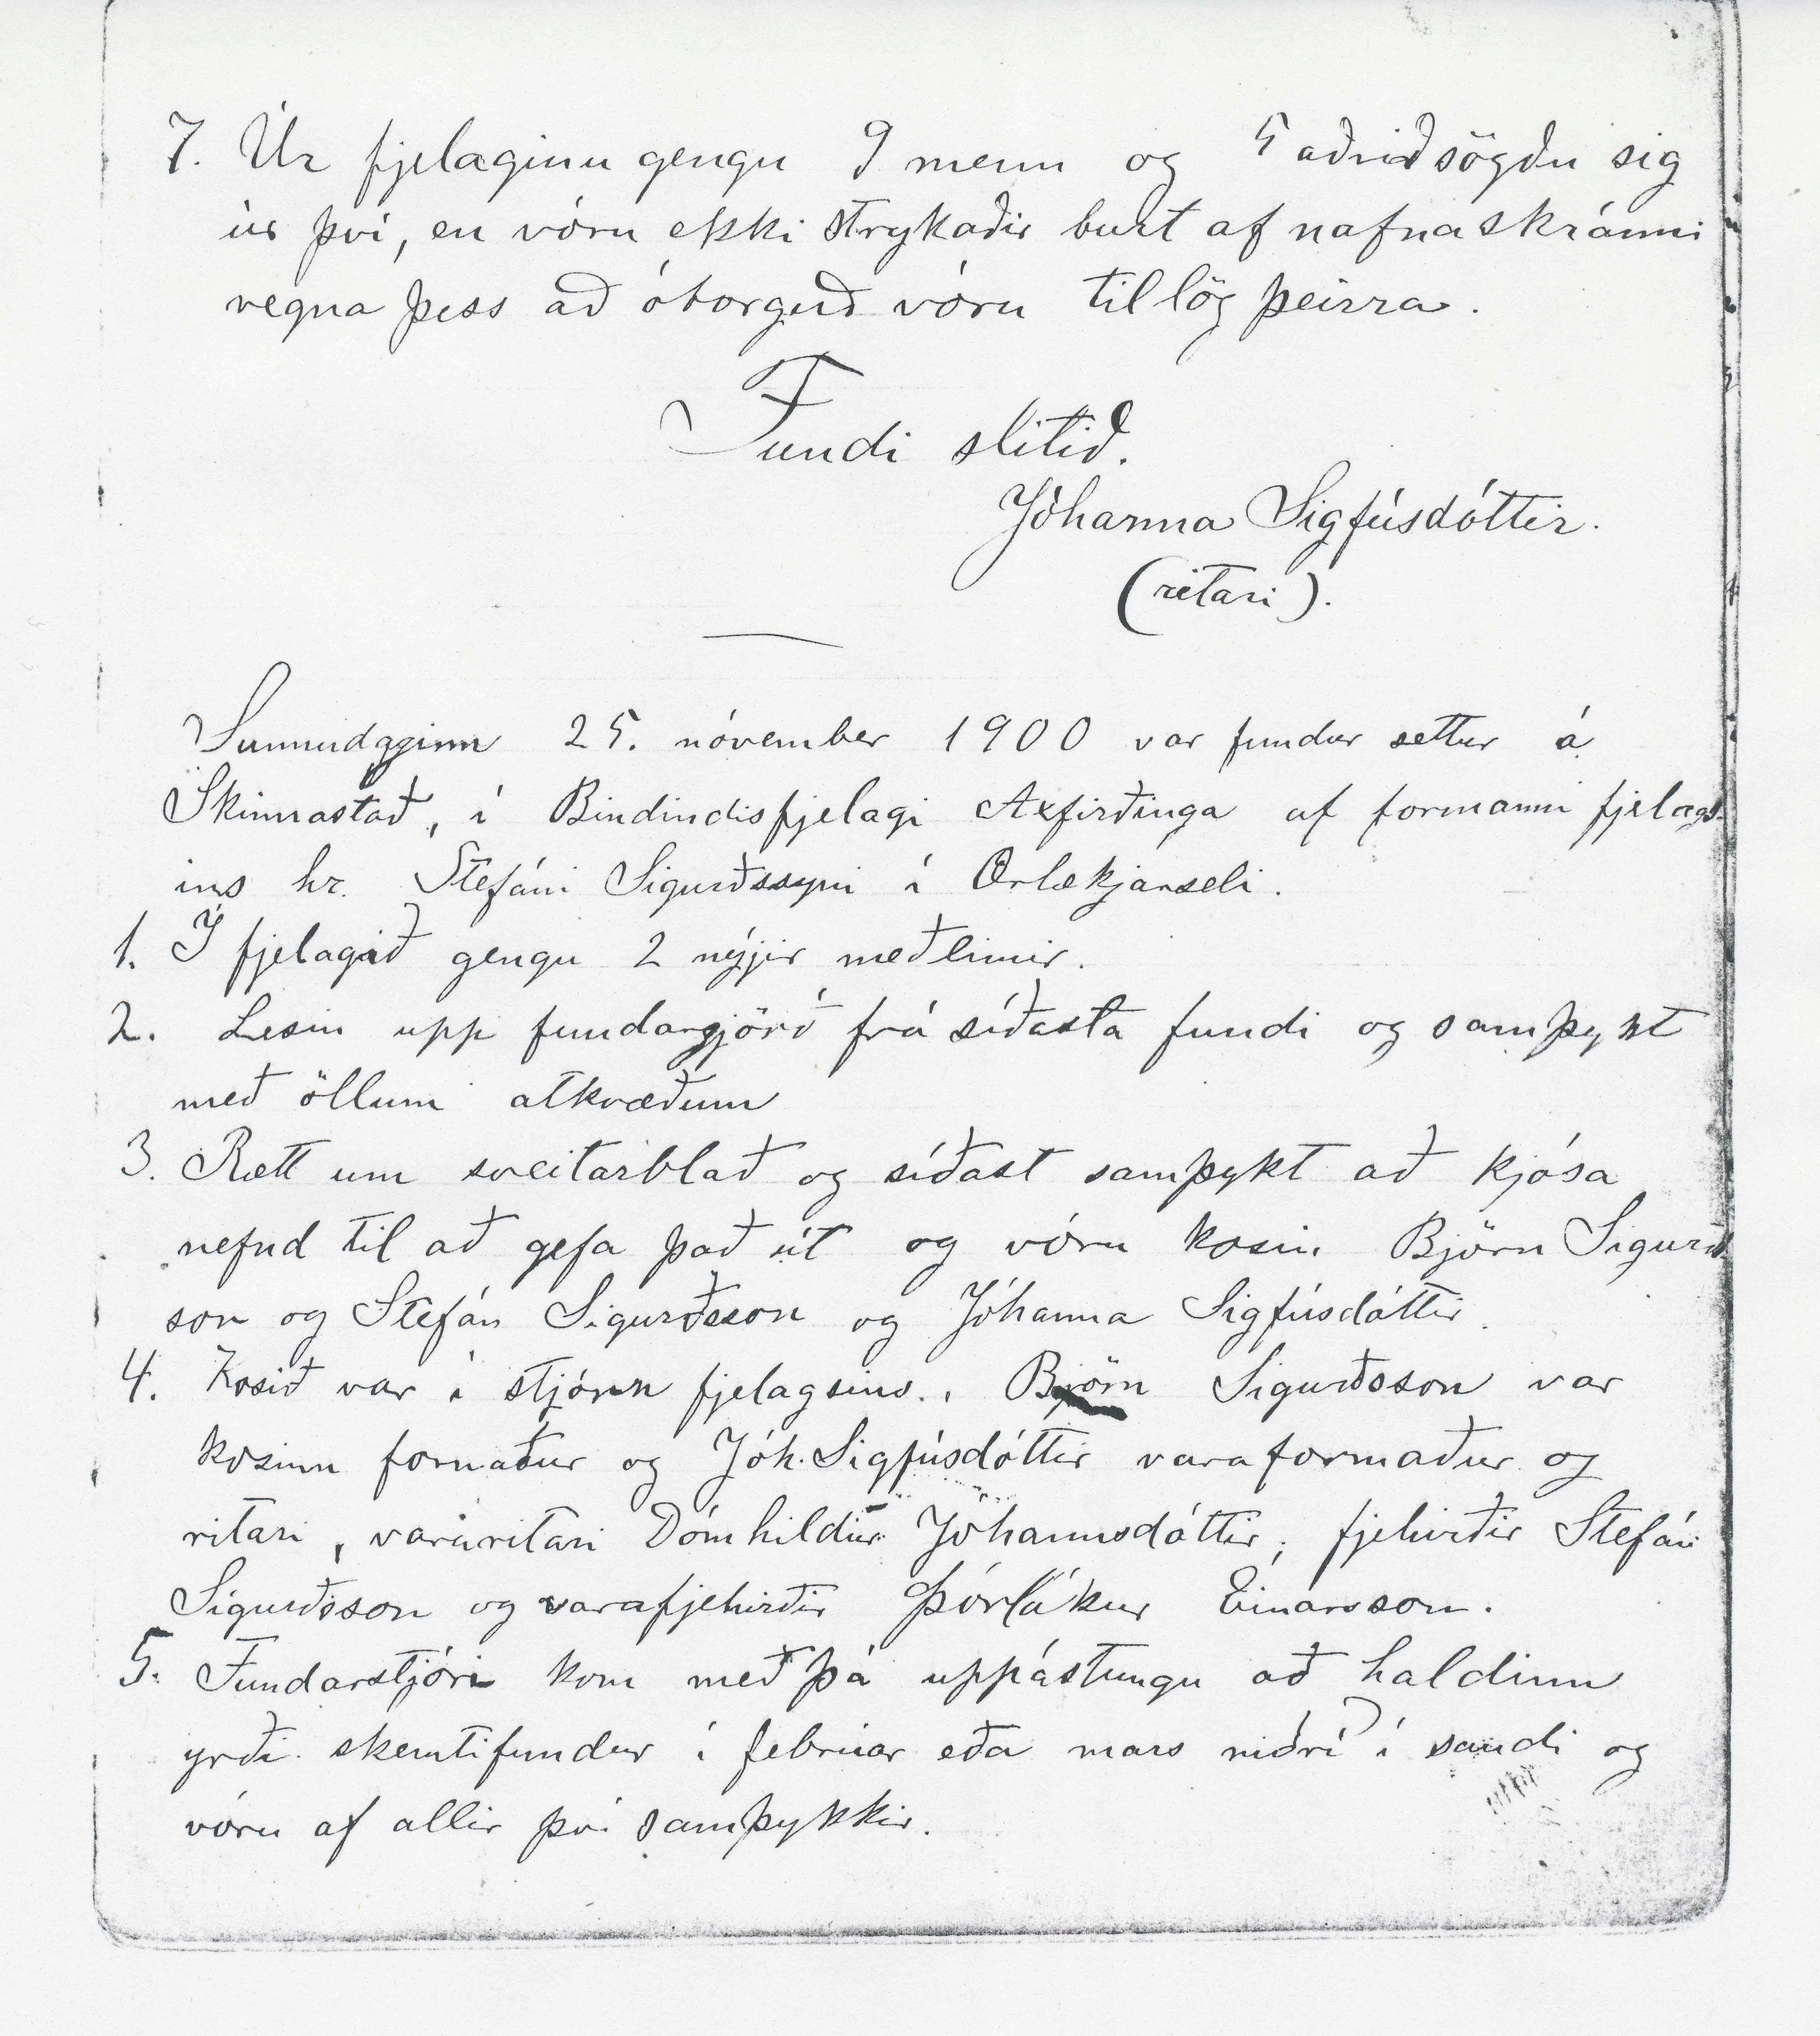 7. Úr fjelaginu gengu 9 menn og 5 aðrir sögðu sig
úr því, en vóru ekki strykaðir burt af nafnaskránni
vegna þess að óborguð vóru tillög þeirra.
Fundi slitið.
Jóhanna Sigfúsdóttir.
(ritari).
Sunnudaginn 25. nóvember 1900 var fundur settur á
Skinnastað, í Bindindisfjelagi Axfirðinga af formanni fjelags-
ins hr. Stefáni Sigurðssyni í Ærlækjarseli.
1. Í fjelagið gengu 2 nýjir meðlimir.
2. Lesin upp fundargjörð frá síðasta fundi og samþykt
með öllum atkvæðum
3. Rætt um sveitarblað og síðast samþykt að kjósa
nefnd til að gefa það út og vóru kosin Björn Sigurðs
son og Stefán Sigurðsson og Jóhanna Sigfúsdóttir.
4. Kosið var í stjórn fjelagsins. Björn Sigurðsson var
kosinn formaður og Jóh. Sigfúsdóttir varaformaður og
ritari, vararitari Dómhildur Jóhannsdóttir, fjehirðir Stefán
Sigurðsson og varafjehirðir Þórlákur Einarsson.
5. Fundarstjóri kom með þá uppástungu að haldinn
yrði skemtifundur í febrúar eða mars niðrí í sandi og
vóru af allir því samþykkir.